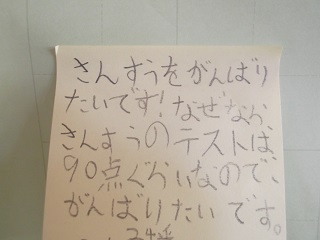 さんすうをがんばり
たいです!なぜなら、
さんすうのテストは、
90点ぐらいなので、
がんばりたいです。